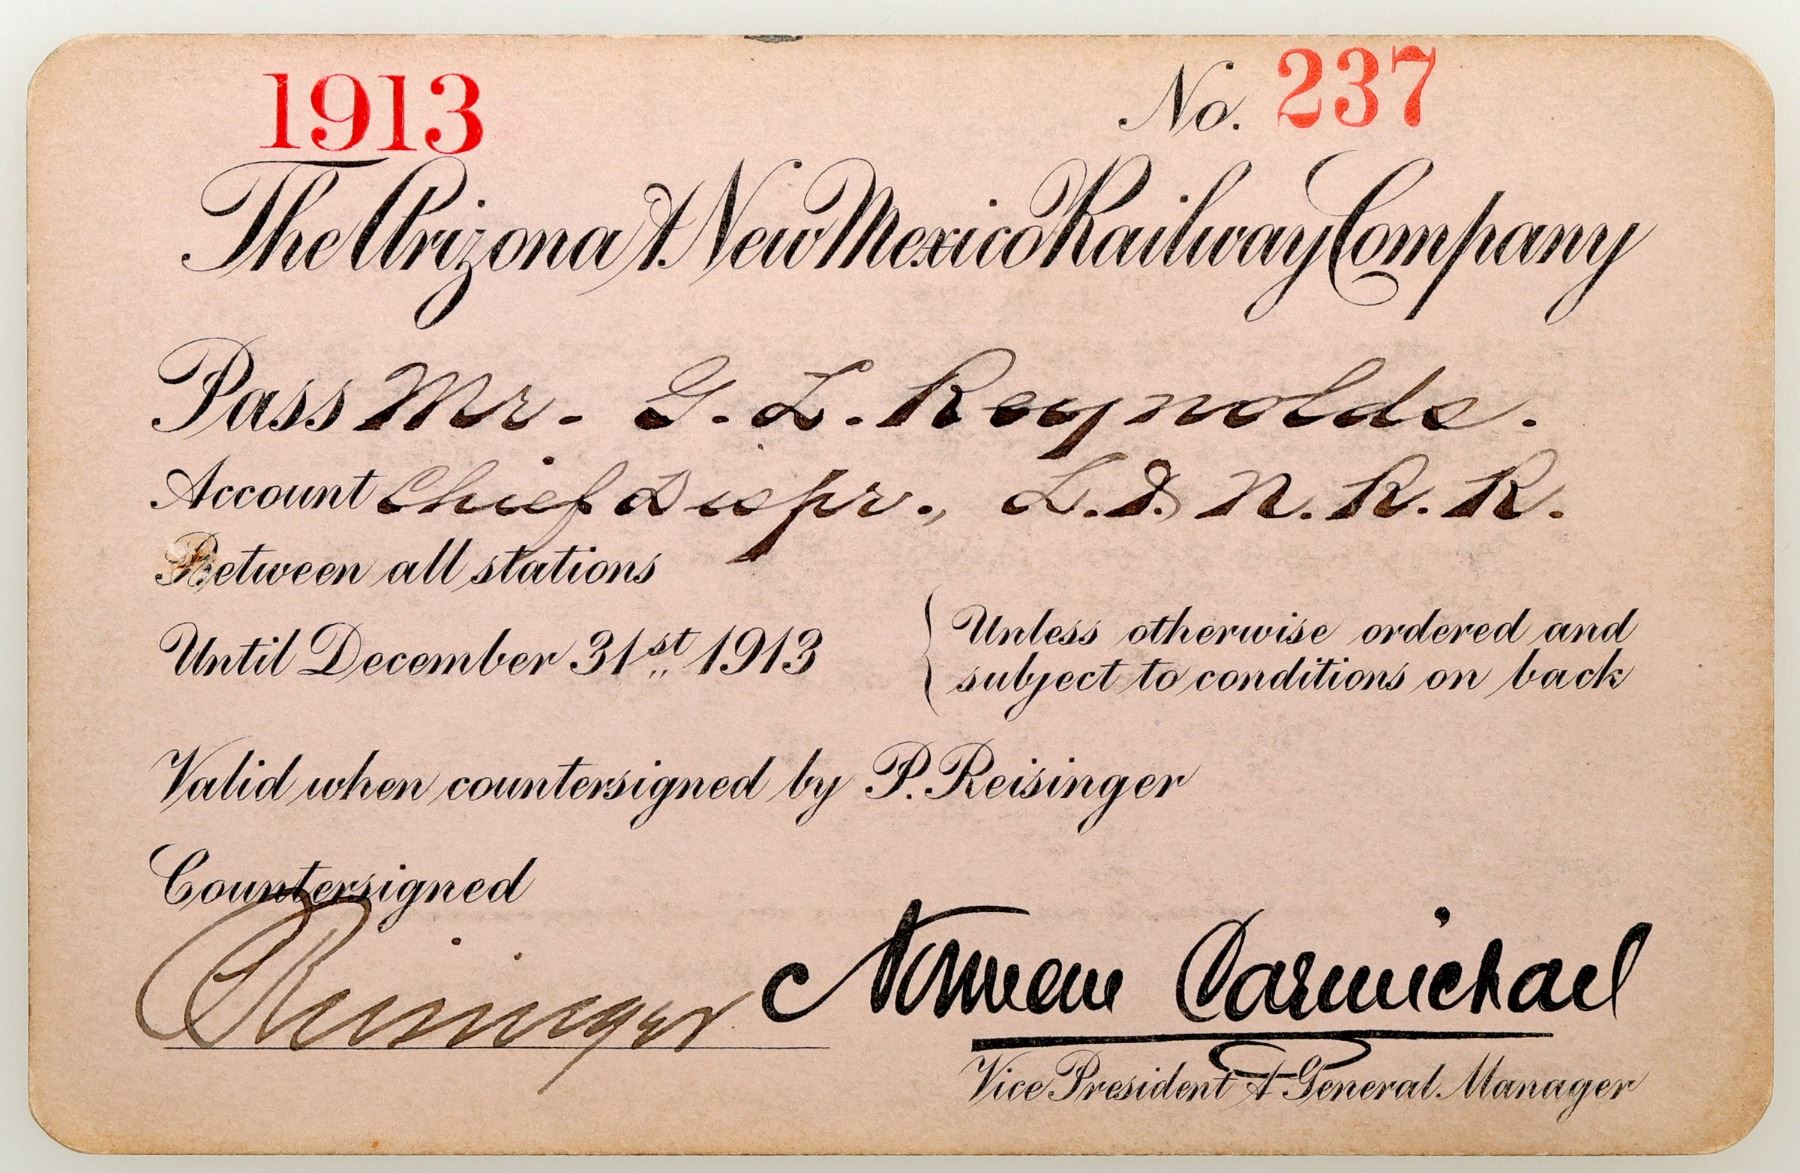 1913 No. 237
The Arizona & New Mexico Railway Company
Pass Mr. G. L. Reynolds.
Account Chief Dispr., L. & N. R. R.
Between all stations
Until December 31st 1913
Unless otherwise ordered and
subject to conditions on back
Valid when countersigned by P. Reisinger
Countersigned
P Reisinger
Norman Carmichael
Vice President & General Manager